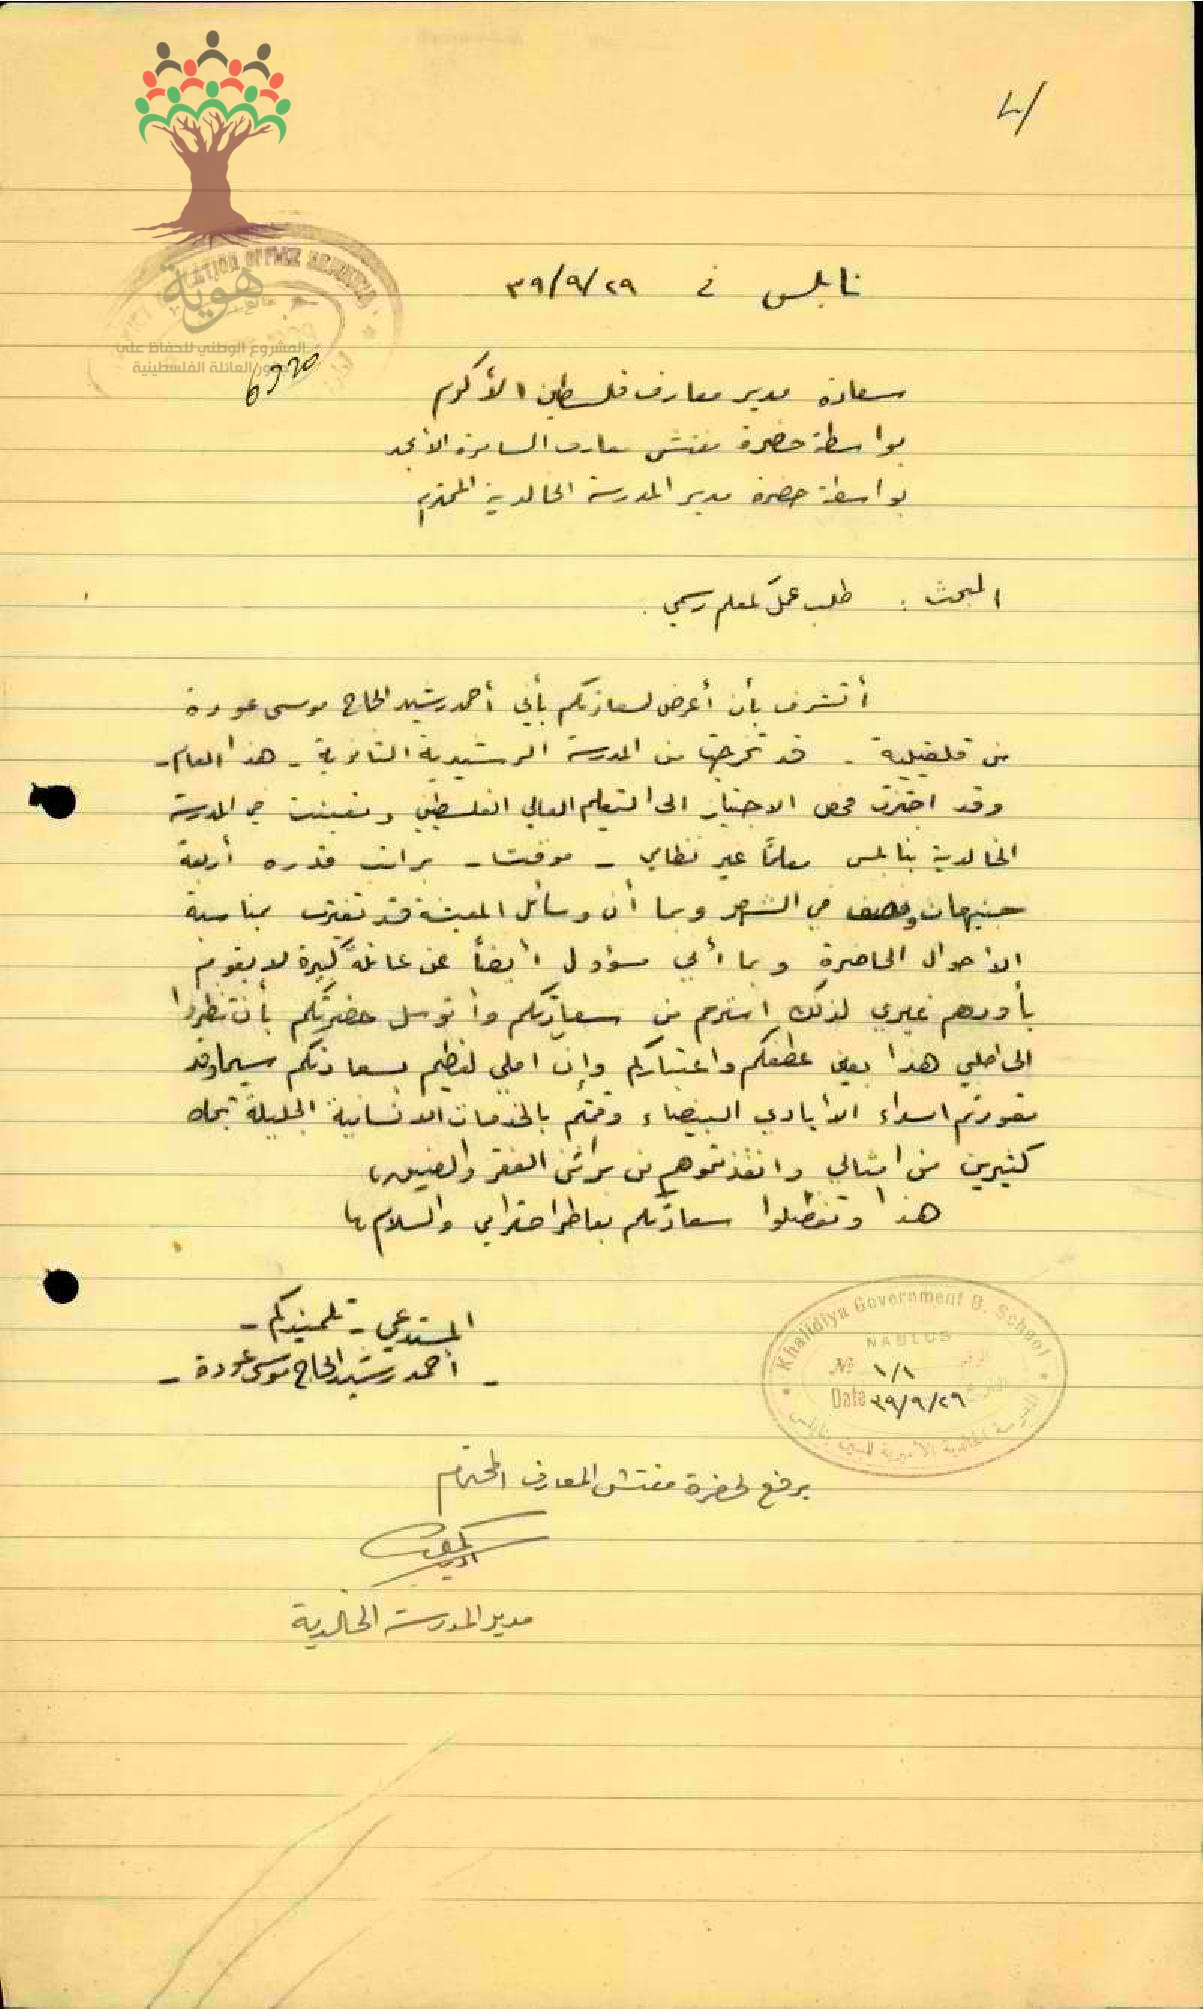 نابلس في ٢٩/٩/٣٩
هوية
المشروع الوطني للحفاظ على
جذور العائلة الفلسطينية
سعادة مدير معارف فلسطين الأكرم
بواسطة حضرة مفتش معارف السامرة الأمجد
بواسطة حضرة مدير المدرسة الخالدية المحترم
المبحث : طلب عمل لمعلم رسمي .
أتشرف بأن أعرض لسعادتكم بأني أحمد رشيد الحاج موسى عودة
من قلقيلية . قد تخرجت من المدرسة الرشيدية الثانوية - هذا العام -
وقد اجتزت فحص الاجتياز الى التعليم العالي الفلسطيني وتعينت في المدرسة
الخالدية بنابلس معلمًا غير نظامي - موقت - براتب قدره أربعة
جنيهات ونصف في الشهر وبما أن وسائل المعيشة قد تغيرت بمناسبة
الاحوال الحاضرة وبما أني مسؤول أيضاً عن عائلة كبيرة لا يقوم
بأودهم غيري لذلك استرحم من سعادتكم وأتوسل حضرتكم بأن تنظروا
الى طلبي هذا بعين عطفكم واعتباركم وإن املي لعظيم بسعادتكم سيما وقد
تعودتم اسداء الايادي البيضاء وقمتم بالخدمات الانسانية الجليلة تجاه
كثيرين من امثالي وانقذتموهم من براثن الفقر
هذا وتفضلوا سعادتكم بعاطر احترامي والسلام
المستدعي - تلميذكم -
- أحمد رشيد الحاج موسى عودة -
Khalidiya Government B. School
NABLUS
№ ١/١ الرقم
Date ٢٩/٩/٣٩
المدرسة الخالدية الأميرية للبنين بنابلس
يرفع لحضرة مفتش المعارف المحترم
مدير المدرسة الخالدية